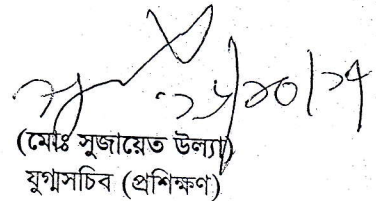 (মোঃ সুজায়েত উল্যা)
যুগ্মসচিব (প্রশিক্ষণ)